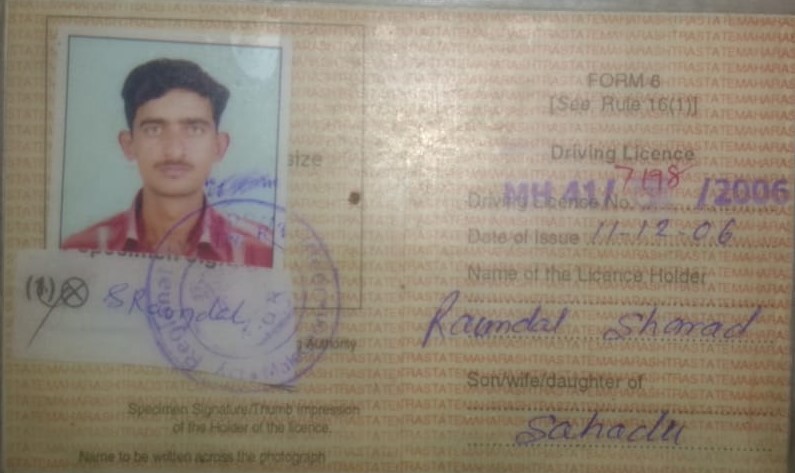 size
Specimen Sign
(1) SRaundal
Authority
Specimen Signature/Thumb Impression
of the Holder of the licence.
Name to be written across the photograph
FORM 6
[See Rule 16(1)]
Driving Licence
Driving Licence No. MH 41/ 7198 /2006
Date of Issue 11-12-06
Name of the Licence Holder
Raundal Sharad
Son/wife/daughter of
Sahadu